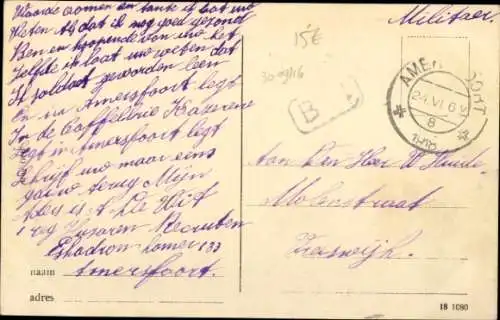 Waarde oomen en tante ik laat uw
Weten Als dat ik nog goed gezond
Ben en hopende van uw het
Zelfde ik laat uw weten dat
Ik soldaat geworden ben
En in Amersfoort legt
In de Kazerene
legt in Amersfoort legt
Schrijf uw maar eens
gauw terug Mijn
Adres is A De Wit
1 reg Huzaren Recruten
Eskadron kamer 133
naam Amersfoort.
adres
Militair
15E
30 09/16
B
AMERSFOORT
24.VI 6 V
8
Aan Den Heer W
Molenstraat
Vreeswijk.
18 1080